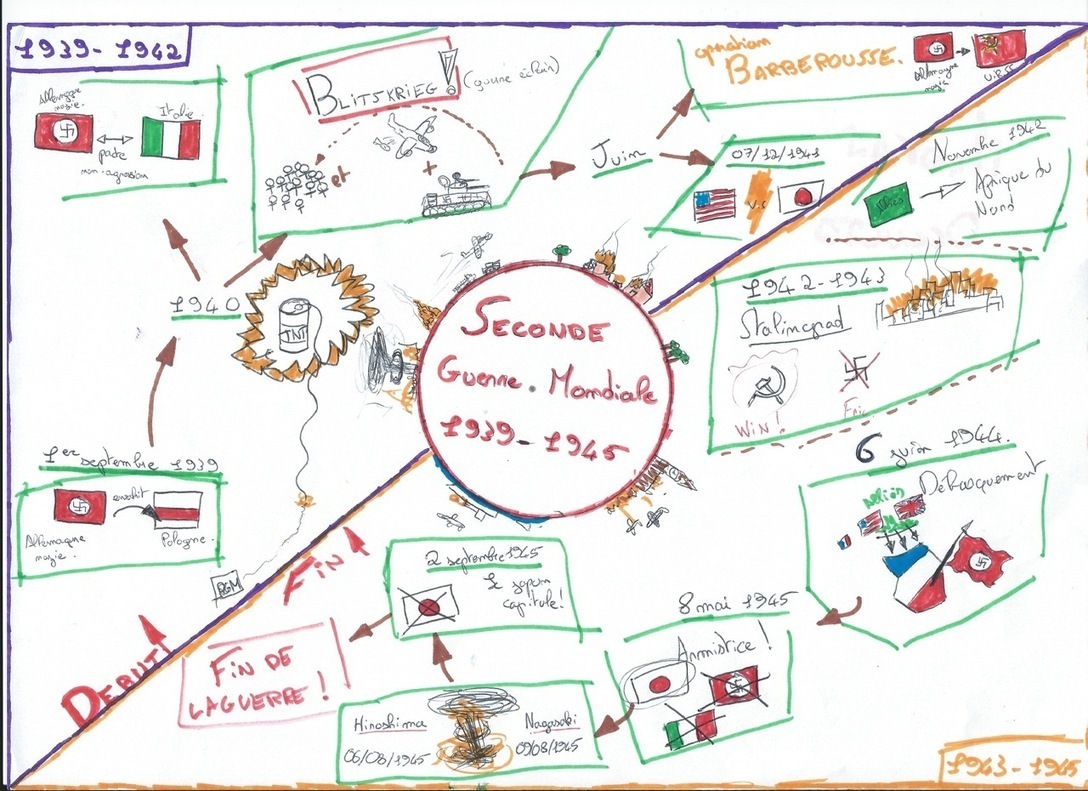 1939-1942
Allemagne nazie.
Italie.
pacte
non-agression
BLITSKRIEG!
(guerre éclair)
et
+
Juin
opération
BARBEROUSSE.
Allemagne nazie
U.R.S.S
07/12/1941
V.S
Novembre 1942
Alliés
Afrique du
Nord
1940
TNT
SECONDE
Guerre. Mondiale
1939-1945
1942-1943
Stalingrad
WIN!
1er septembre 1939
envahit
Allemagne
nazie.
Pologne.
6 juin 1944.
Debarquement
BGM
DEBUT
FIN
2 septembre 1945
Le japon
capitule!
8 mai 1945
Armistice!
FIN DE
LA GUERRE!
Hiroshima
06/08/1945
Nagasaki
09/08/1945
1943-1945